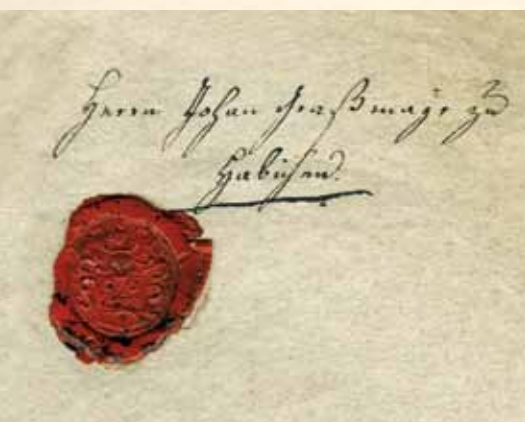 Herrn Johan Graßmayr zu
Habichen.